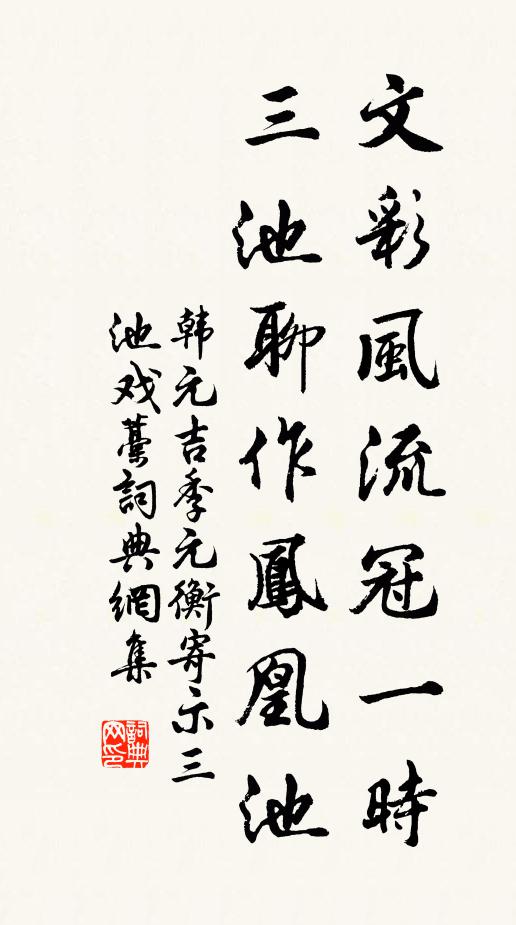 文彩風流冠一時
三池聊作鳳凰池
韩元吉季元衡寄示三
池戏藁詞典網集
詞典网印